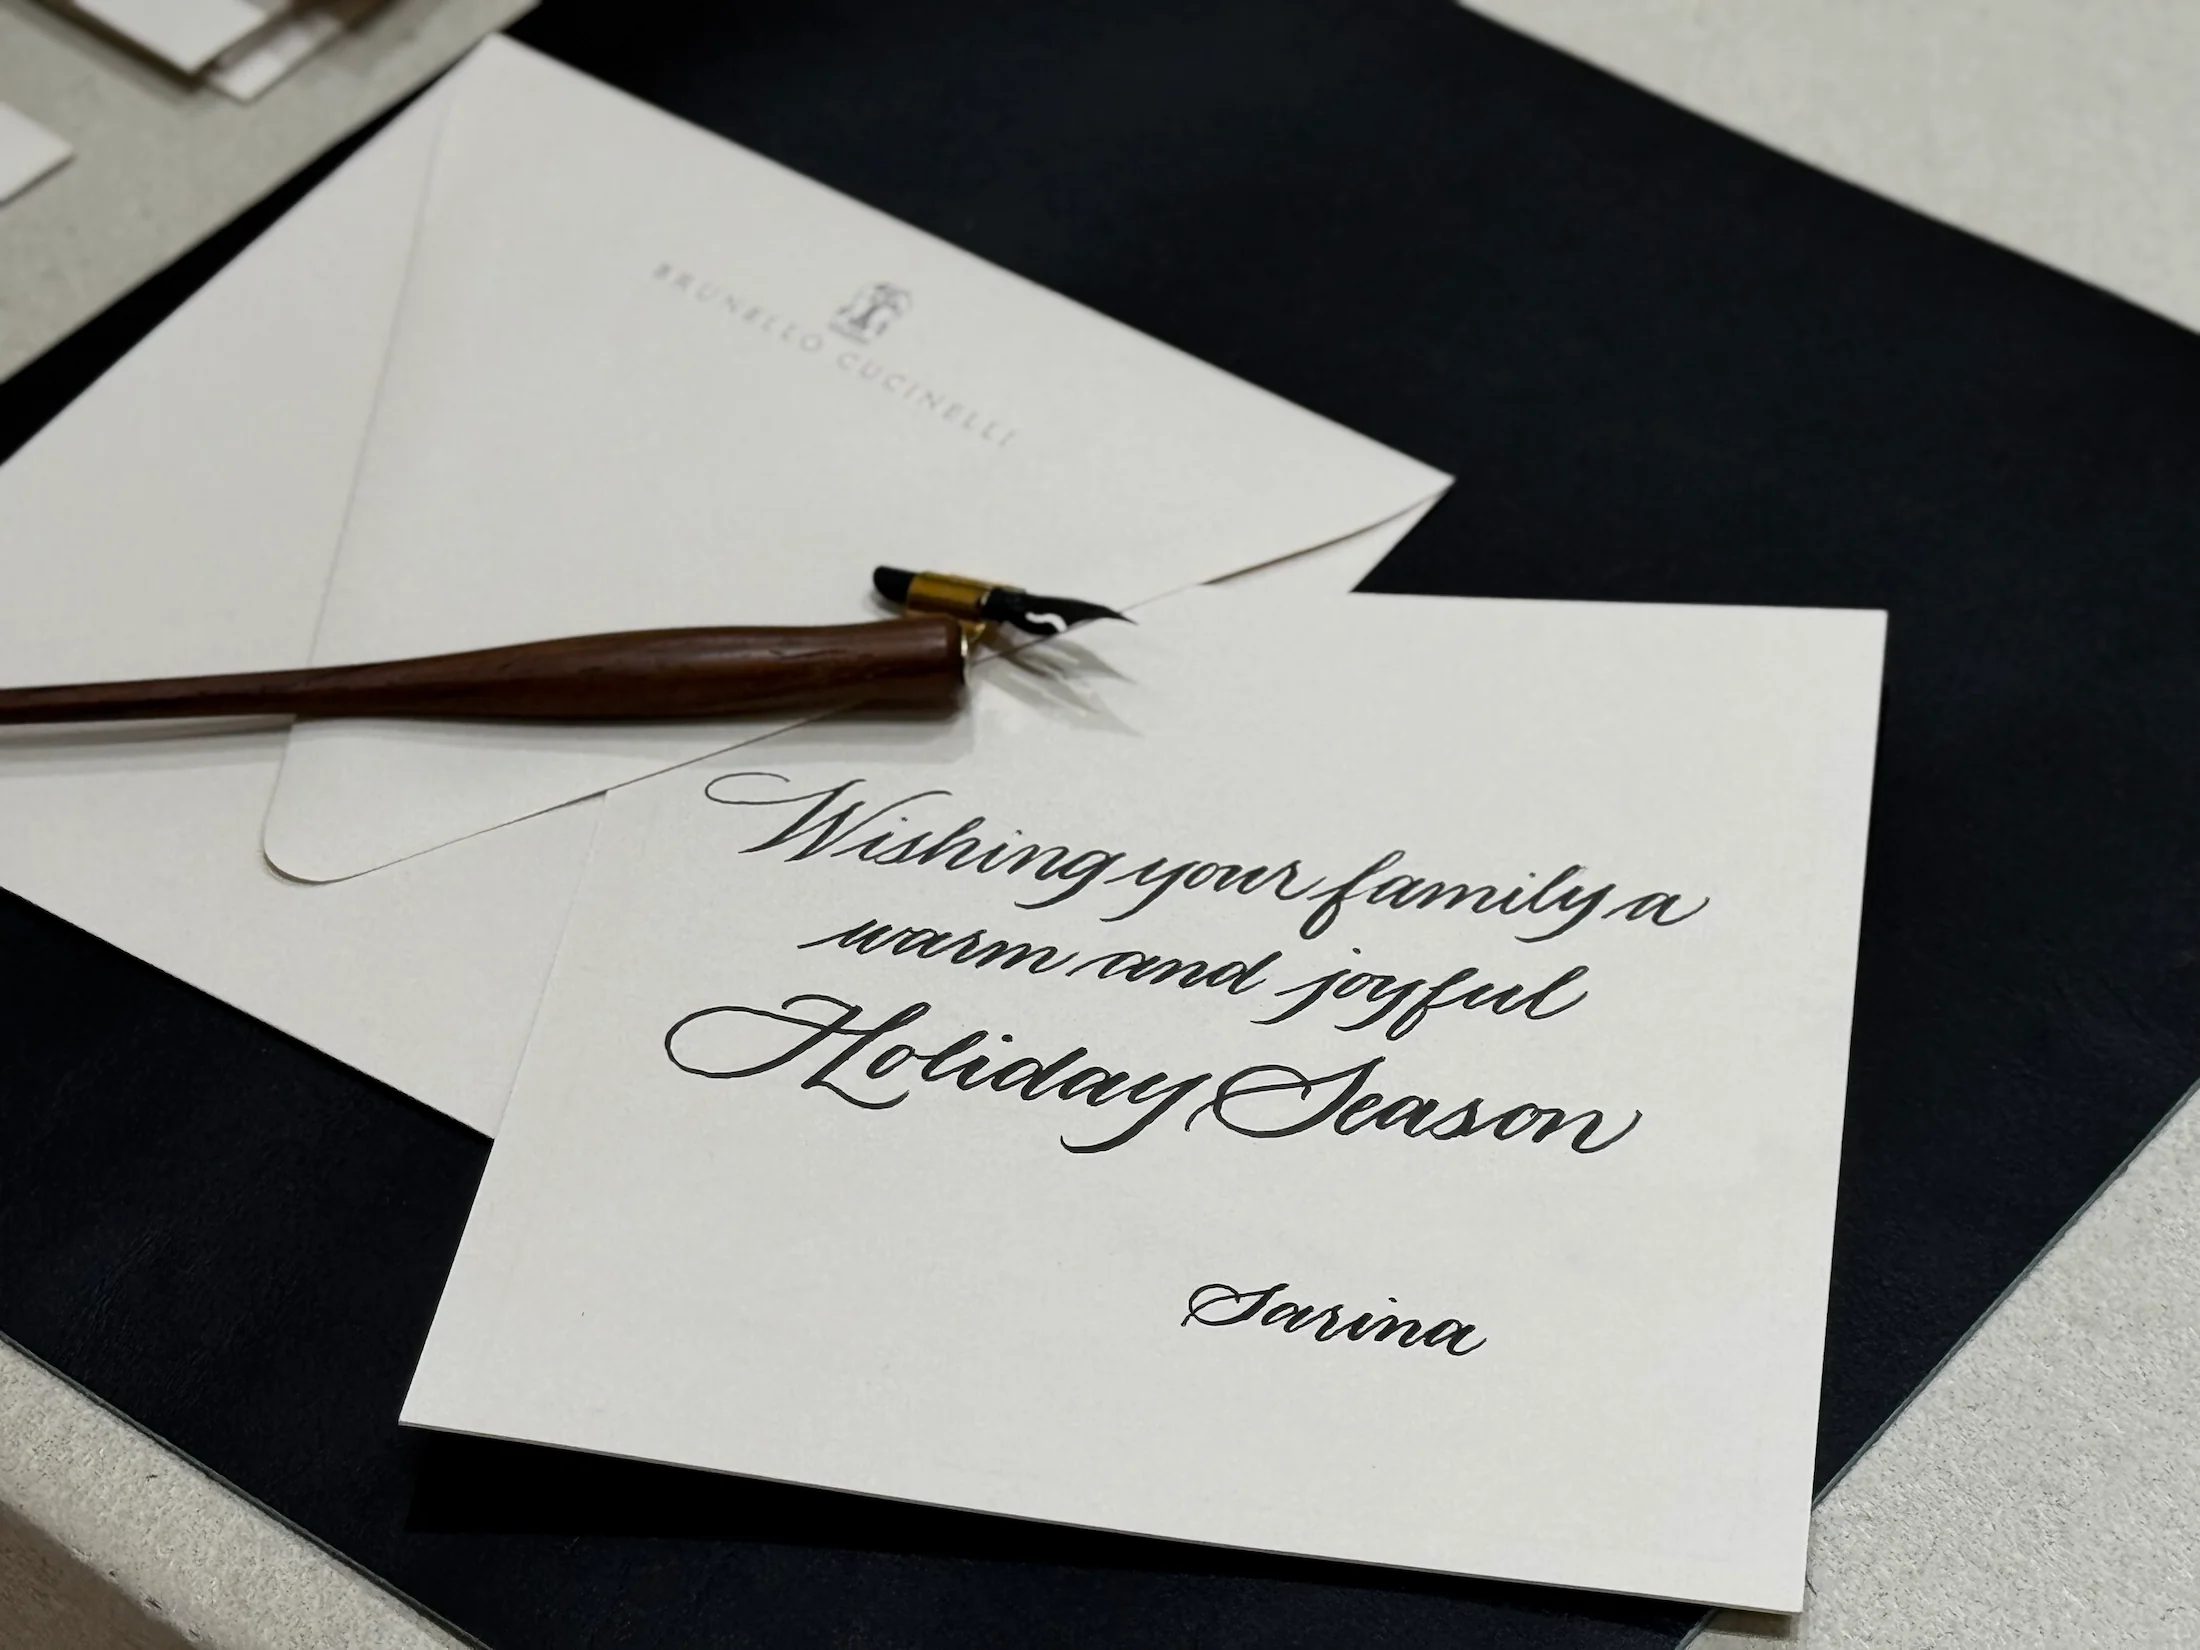 BRUNELLO CUCINELLI
Wishing your family a
warm and joyful
Holiday Season
Sarina